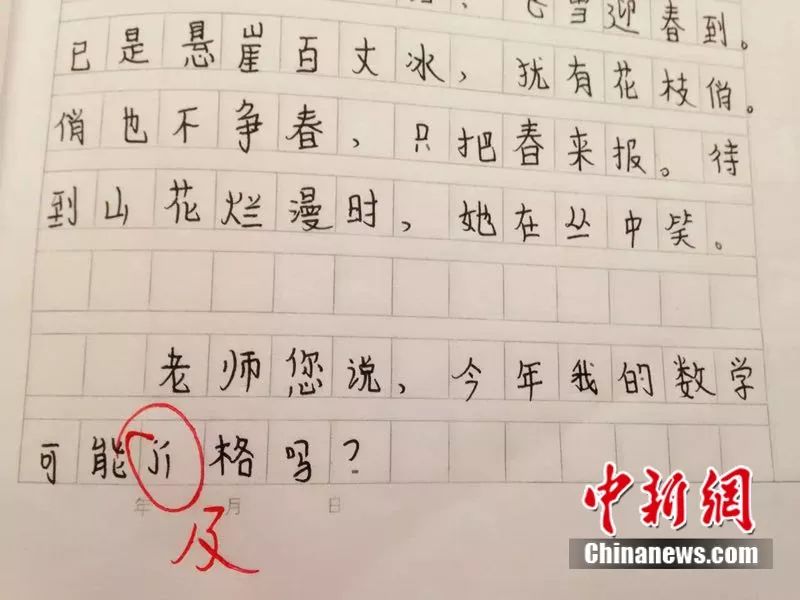 飞雪迎春到。
已是悬崖百丈冰，犹有花枝俏。
俏也不争春，只把春来报。待
到山花烂漫时，她在丛中笑。
老师您说，今年我的数学
可能jí格吗？
年 月 日
及
中新網
Chinanews.com